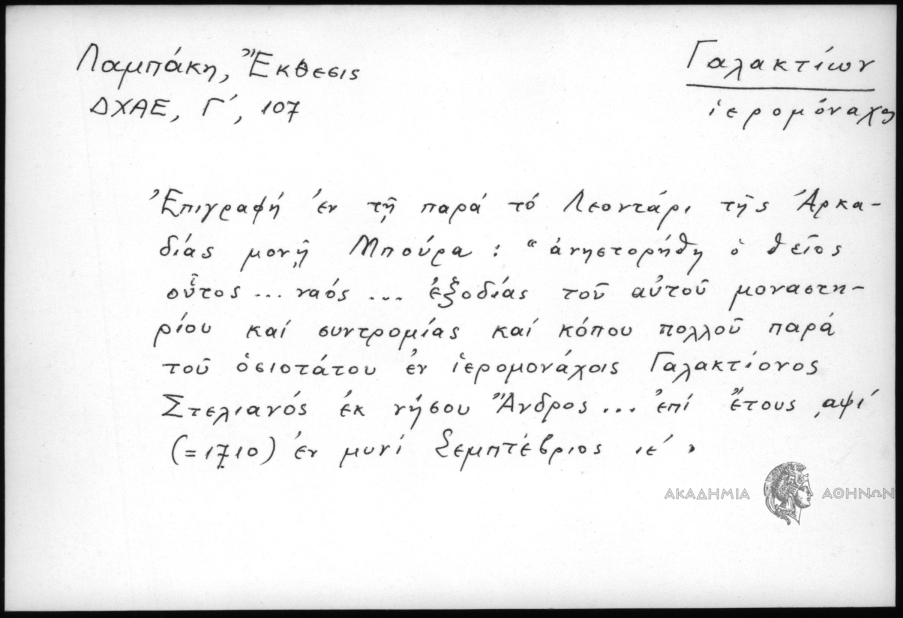 Λαμπάκη, Ἔκθεσις
ΔΧΑΕ, Γ΄, 107
Γαλακτίων
ἱερομόναχος
Ἐπιγραφή ἐν τῇ παρά τό Λεοντάρι τῆς Ἀρκα-
δίας μονῇ Μπούρα : "ἀνηστορήθη ὁ θεῖος
οὗτος ... ναός ... ἐξοδίας τοῦ αὐτοῦ μοναστη-
ρίου καί συντρομίας καί κόπου πολλοῦ παρά
τοῦ ὁσιοτάτου ἐν ἱερομονάχοις Γαλακτίονος
Στελιανός ἐκ νήσου Ἄνδρος ... ἐπί ἔτους ͵αψί
(=1710) ἐν μυνί Σεμπτέβριος ιε΄ "
ΑΚΑΔΗΜΙΑ ΑΘΗΝΩΝ